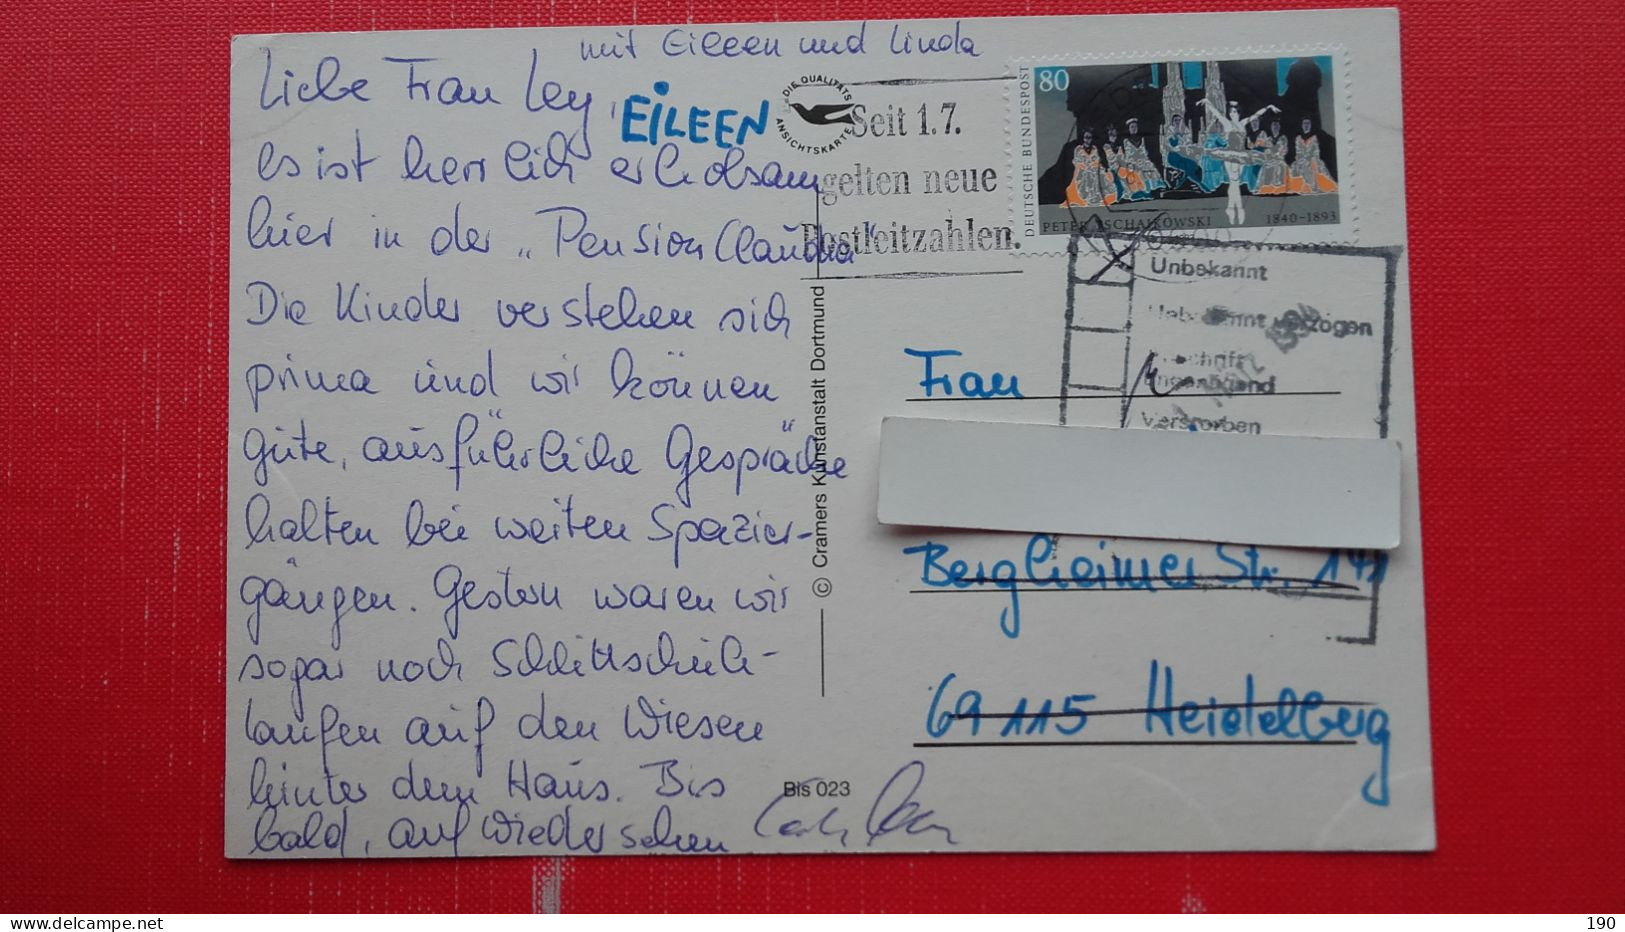 mit Eileen und Linda
Liebe Frau Ley,
EILEEN
es ist herrlich erholsam
hier in der „Pension Claudia"
Die Kinder verstehen sich
prima und wir können
gute, ausführliche Gespräche
halten bei weiten Spazier-
gängen. Gestern waren wir
sogar noch Schlittschuh-
laufen auf den Wiesen
hinter dem Haus. Bis
bald, auf Wiedersehen
DIE QUALITÄTS
ANSICHTSKARTE
Seit 1.7.
gelten neue
Postleitzahlen.
80
DEUTSCHE BUNDESPOST
PETER TSCHAIKOWSKI 1840-1893
Unbekannt
Unbekannt verzogen
Anschrift
ungenügend
Verstorben
© Cramers Kunstanstalt Dortmund
Bis 023
Frau
Bergheimer Str. 147
69115 Heidelberg
delcampe.net
190